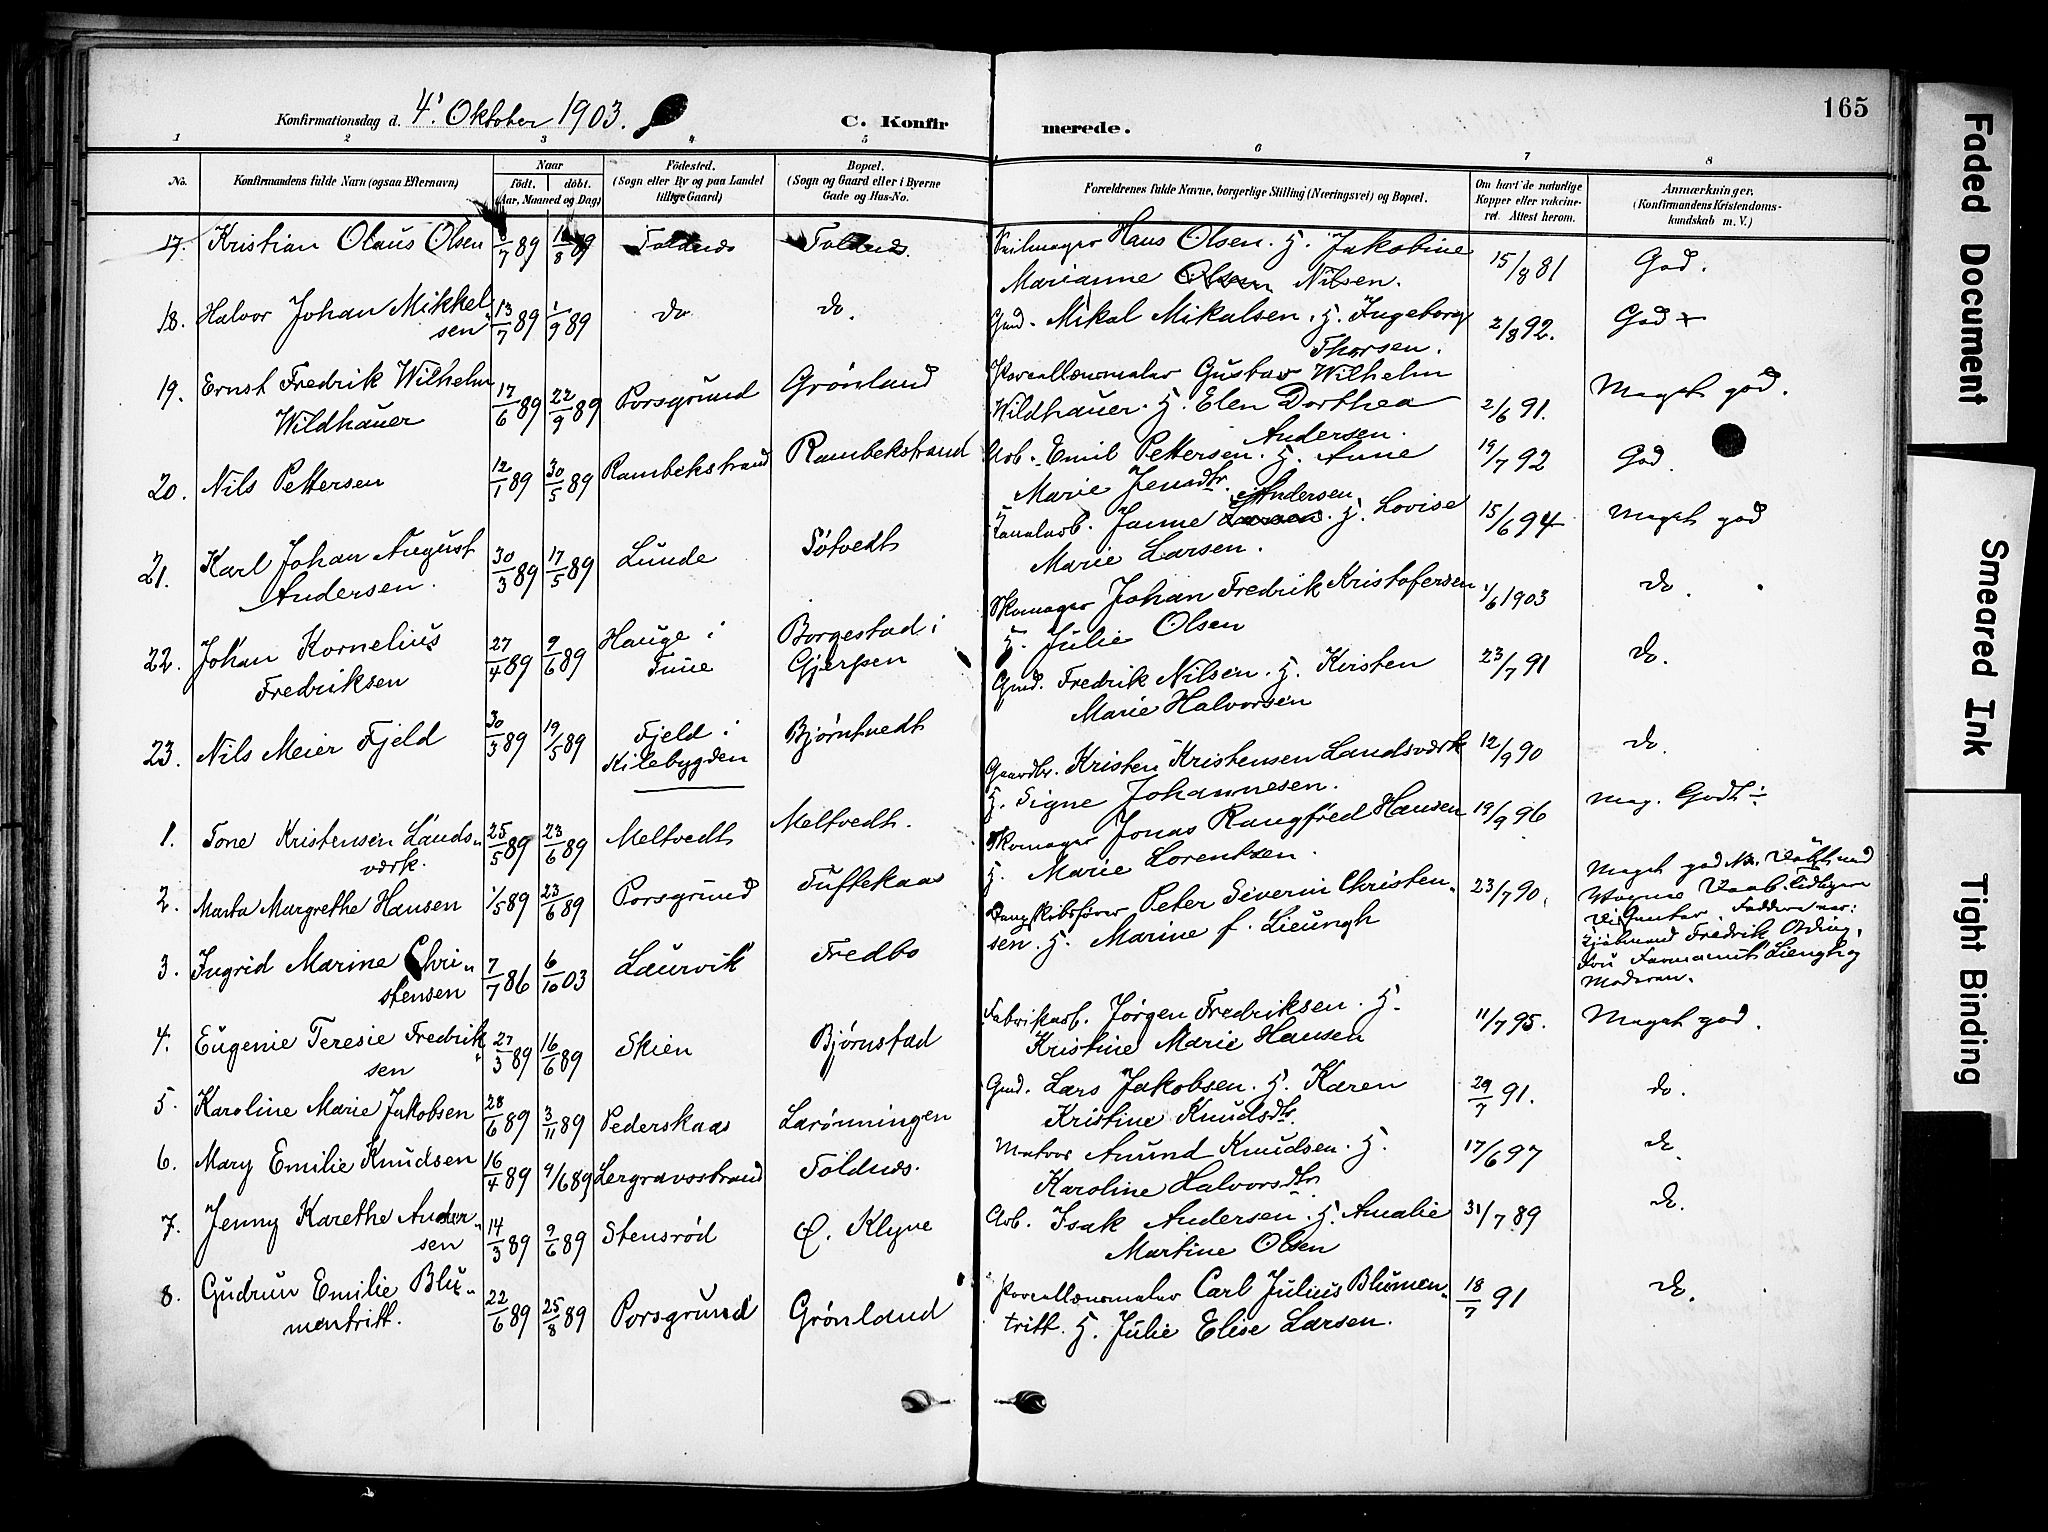 Konfirmationsdag d. 4' Oktober 1903.
C. Konfirmerede.
165
1 2 3 4 5 6 7 8
No.
Konfirmandens fulde Navn (ogsaa Efternavn)
Naar
födt. döbt.
(Aar, Maaned og Dag)
Födested.
(Sogn eller By og paa Landet
tillige Gaard)
Bopæl.
(Sogn og Gaard eller i Byerne
Gade og Hus-No.
Forældrenes fulde Navne, borgerlige Stilling (Næringsvei) og Bopæl.
Om havt de naturlige
Kopper eller vaccineret. Attest herom.
Anmærkninger.
(Konfirmandens Kristendomskundskab m. V.)
17. Kristian Olaus Olsen /7 89 /8 89 Toldnes Toldnes. Seilmager Hans Olsen. H. Jakobine
Marianne Olsen Nilsen. 15/8 81 God.
18. Halvor Johan Mikkelsen 13/7 89 1/9 89 do do. Gmd. Mikal Mikalsen. H. Ingeborg
Thorsen. 2/8 92. God
19. Ernst Fredrik Wilhelm
Wildhauer 17/6 89 22/9 89 Porsgrund Grönland Porcellænsmaler Gustav Wilhelm
Wildhauer. H. Elen Dorthea
Andersen. 2/6 91. Meget god.
20. Nils Pettersen 12/1 89 30/5 89 Rambekstrand Rambekstrand Arb. Emil Pettersen. H. Anne
Marie Jensdtr. 19/7 92 God.
21. Karl Johan August
Andersen. 30/3 89 17/5 89 Lunde Götvedt Kanalarb. Janne Andersen. H. Lovise
Marie Larsen. 15/6 94 Meget god
22. Johan Kornelius
Fredriksen 27/4 89 9/6 89 Hauge i
Tune Borgestad i
Gjerpen Skomager Johan Fredrik Kristofersen
H. Julie Olsen 1/6 1903 do.
23. Nils Meier Fjeld 30/3 89 19/5 89 Fjeld i
Kilebygden Björntvedt Gmd. Fredrik Nilsen. H. Kirsten
Marie Halvorsen 23/7 91 do.
1. Tone Kristensen Landsværk. 25/5 89 23/6 89 Meltvedt Meltvedt. Gaardbr. Kristen Kristensen Landsværk
H. Signe Johannesen. 12/9 90 do.
2. Marta Margrethe Hansen 1/5 89 23/6 89 Porsgrund Tuftekaas Skomager Jonas Rangfred Hansen
H. Marie Lorentzen. 19/9 96 Meg. Godt
3. Ingrid Marine Christensen 7/7 86 6/10 03 Laurvik Fredbo Peter Severin Christensen. H. Marine f. Lieungh 23/7 90. Meget god
Fredrik
Moderen.
4. Eugenie Teresie Fredriksen 27/3 89 16/6 89 Skien Björnstad Fabrikarb. Jörgen Fredriksen. H.
Kristine Marie Hansen 11/7 95. Meget god.
5. Karoline Marie Jakobsen 28/6 89 3/11 89 Pederskaas Larönningen Gmd. Lars Jakobsen. H. Karen
Kristine Knudsdtr. 29/7 91. do.
6. Mary Emilie Knudsen 16/4 89 9/6 89 Lergravsstrand Toldnes. Matros Anund Knudsen. H.
Karoline Halvorsdtr 17/6 97 do
7. Jenny Karethe Andersen 14/3 89 9/6 89 Stensröd Ø. Klyve Arb. Isak Andersen. H. Amalie
Martine Olsen 31/7 89 do.
8. Gudrun Emilie Blumentritt. 22/6 89 25/8 89 Porsgrund Grönland Porcellænsmaler Carl Julius Blumentritt. H. Julie Elise Larsen. 18/7 91 do.
Faded Document
Smeared Ink
Tight Binding